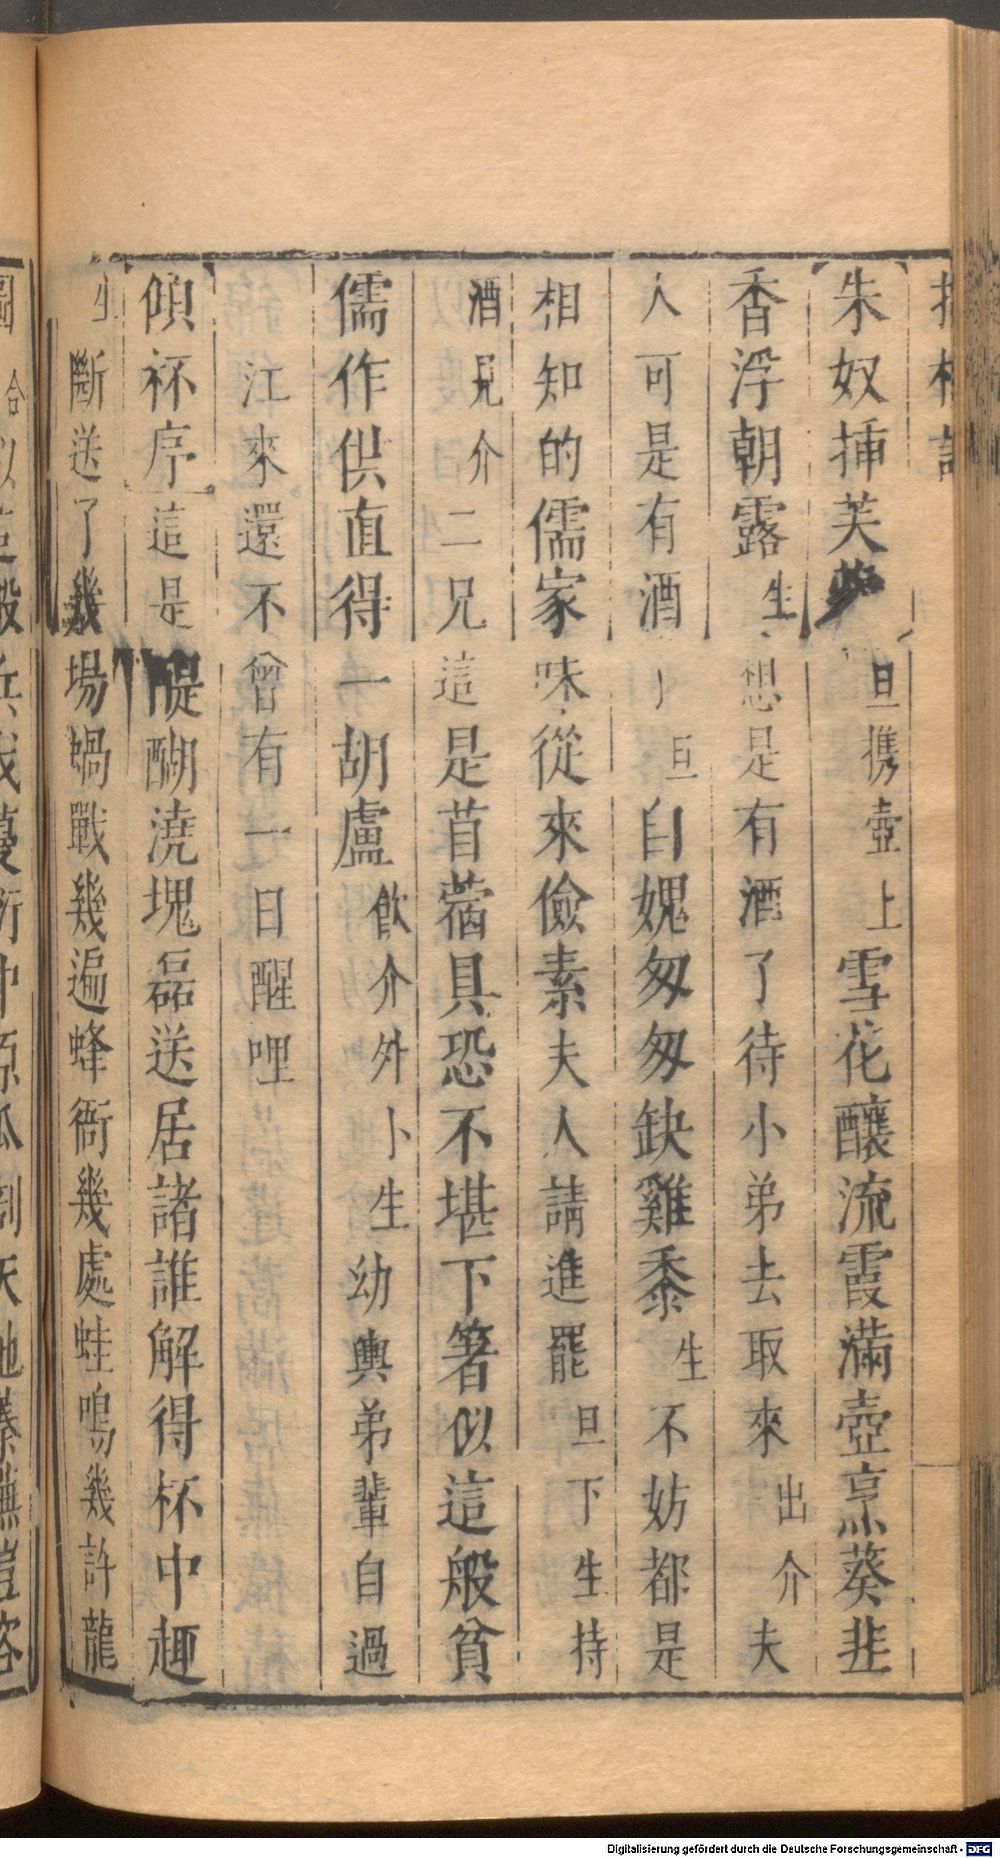 朱奴揷芙蓉旦携壺上雪花釀流霞滿壺烹葵韭
香浮朝露生想是有酒了待小弟去取來出介夫
人可是有酒旦自媿匆匆缺雞黍生不妨都是
相知的儒家味從來儉素夫人請進罷旦下生持
酒見介二兄這是苜蓿具恐不堪下箸似這般貧
儒作供直得一胡盧飲介外卜生幼輿弟輩自過
江來還不曾有一日醒哩
傾杯序這是醍醐澆塊磊送居諸誰解得杯中趣
生斷送了幾場蝸戰幾遍蜂衙幾處蛙鳴幾許龍
圖合以這般兵戈蔓衍中原瓜割天地蓁蕪豈容
Digitalisierung gefördert durch die Deutsche Forschungsgemeinschaft - DFG